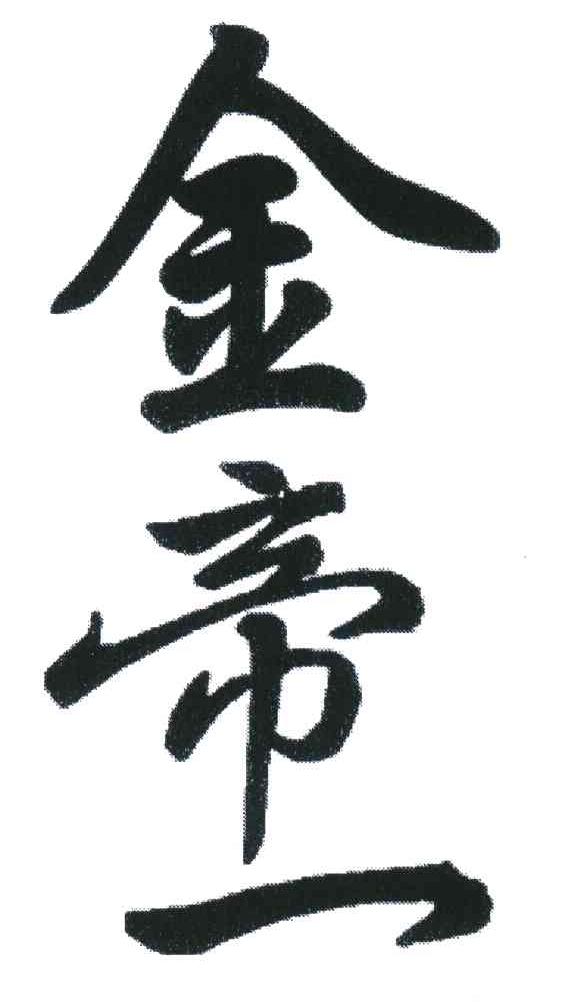 金帝一